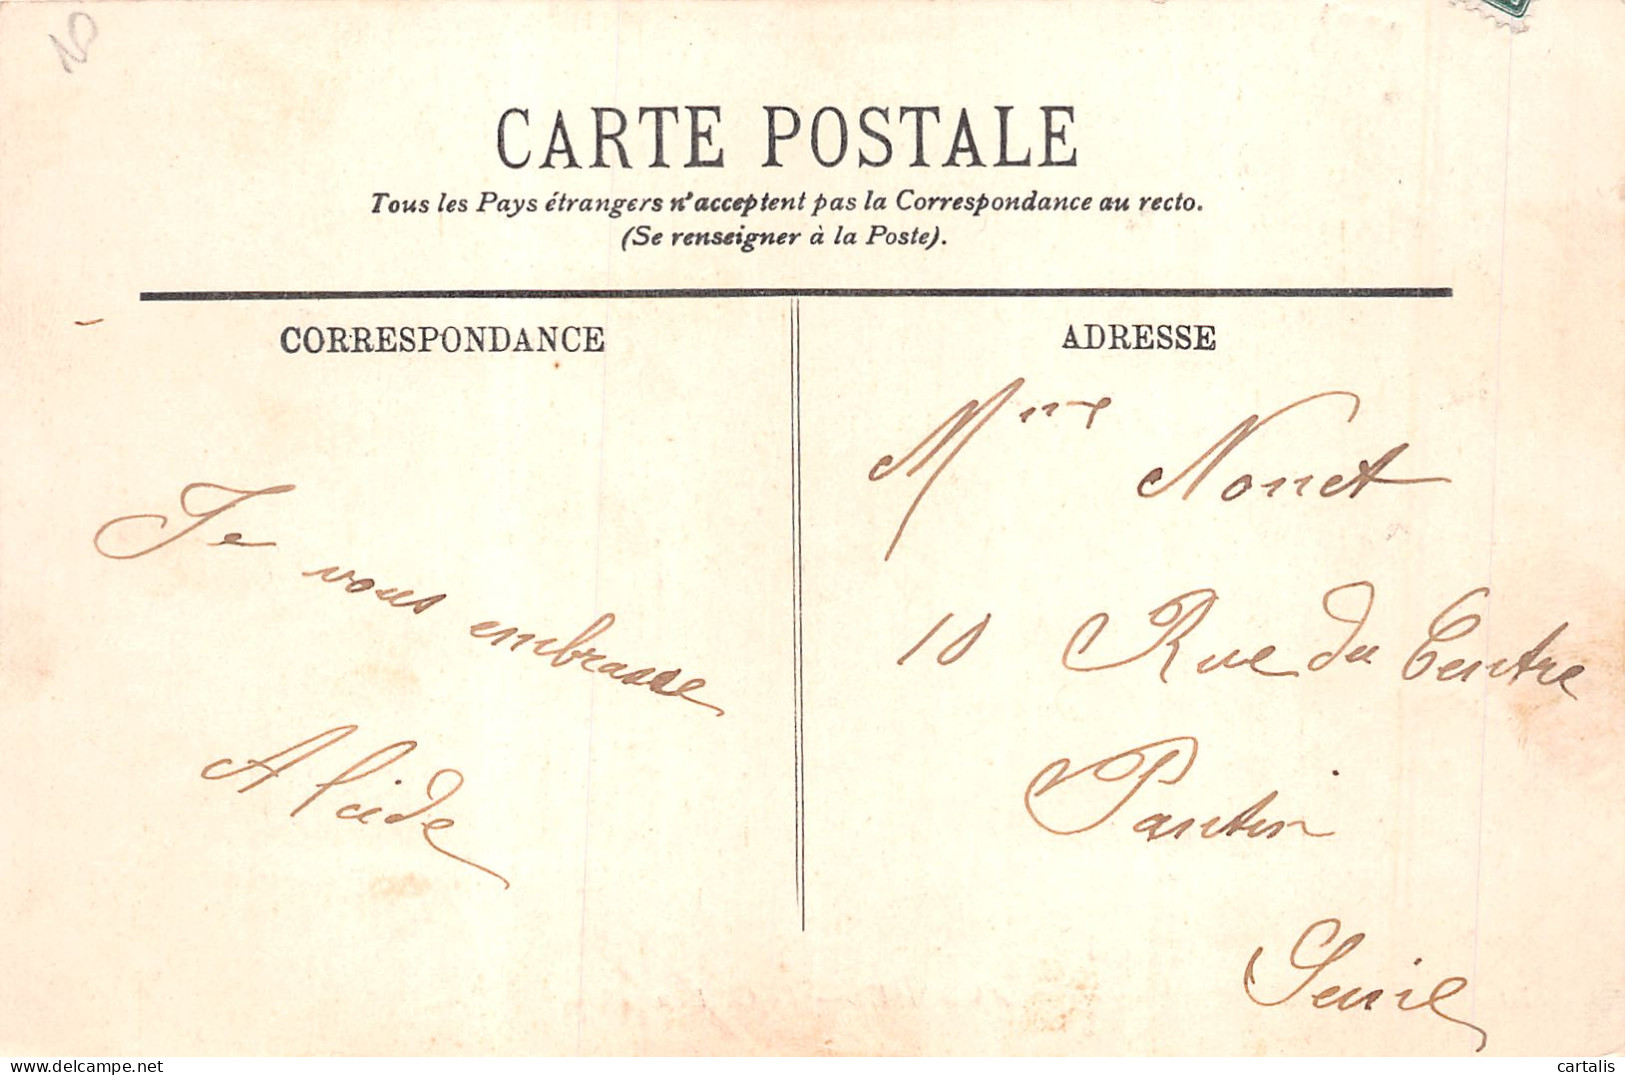 10
CARTE POSTALE
Tous les Pays étrangers n'acceptent pas la Correspondance au recto.
(Se renseigner à la Poste).
CORRESPONDANCE
Je vous embrasse
Alcide
ADRESSE
Mme Nonet
10 Rue du Centre
Pantin
Seine
cartalis